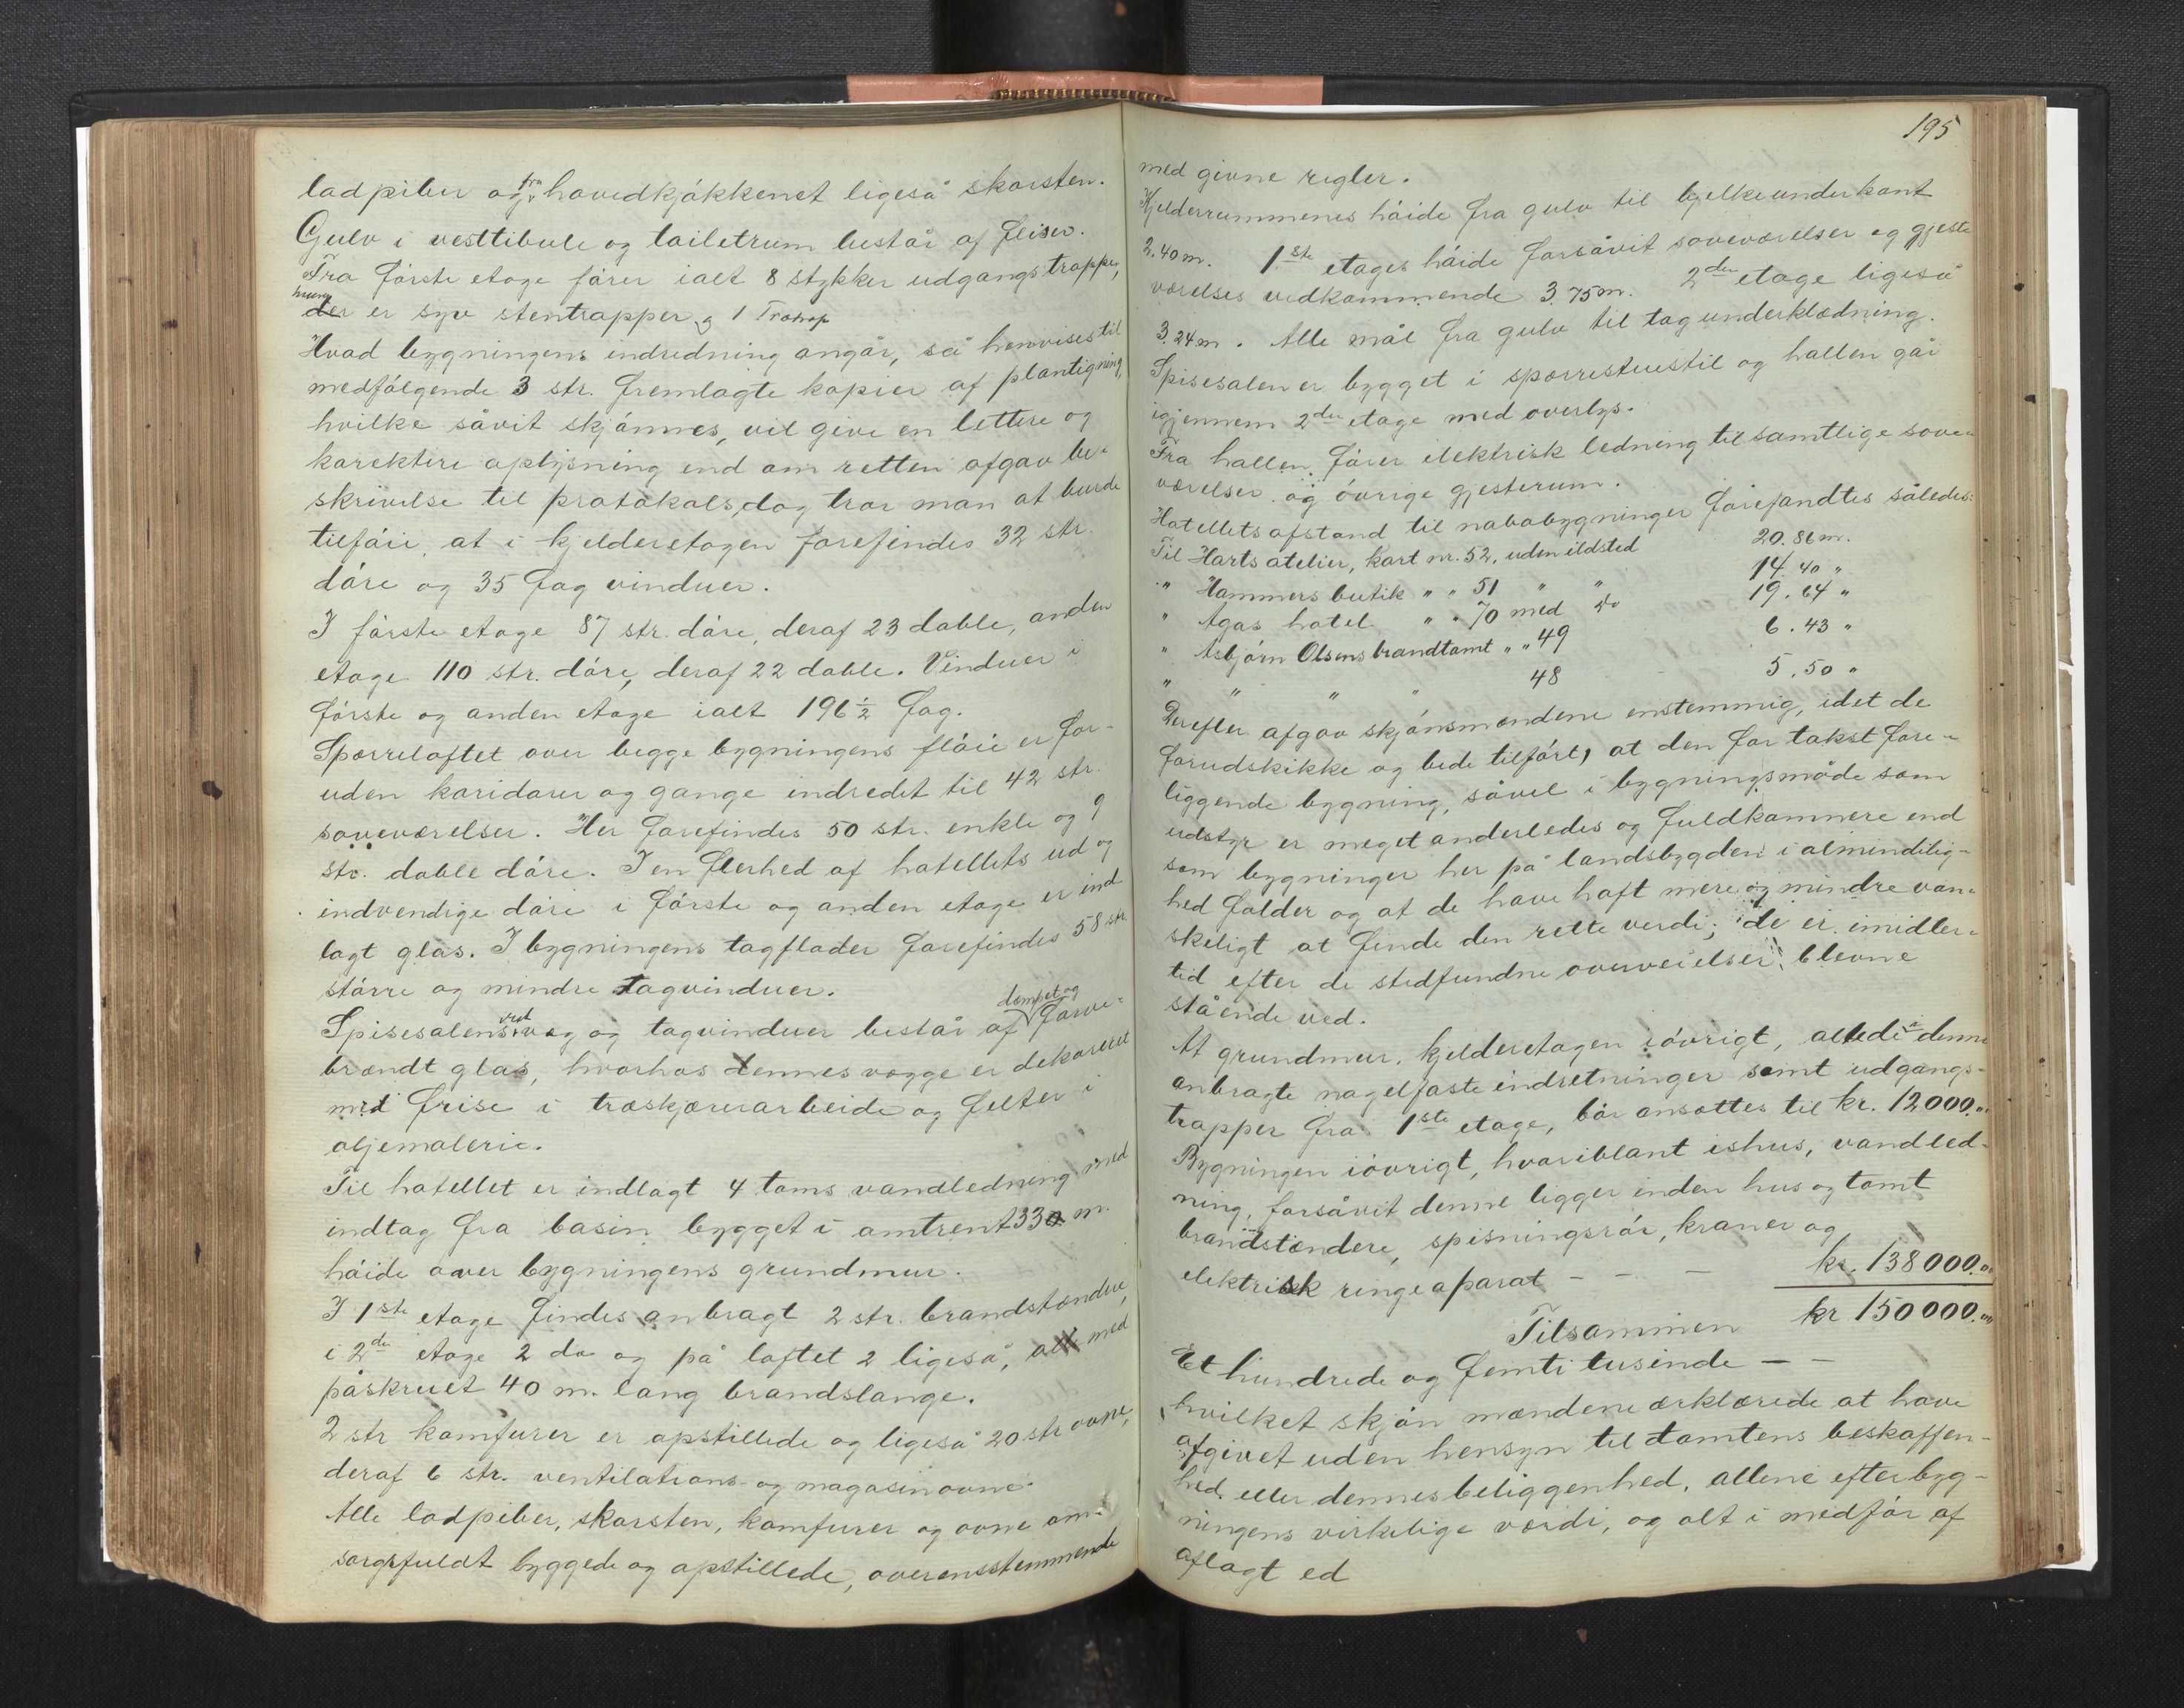 ladpiber og fra hovedkjøkkenet ligeså skorsten.
Gulv i vesttibule og toiletrum består af fliser.
Fra første etage fører ialt 8 stykker udgangstrapper,
hvoraf der er syv stentrapper og 1 Trætrap
Hvad bygningens indredning angår, så henvises til
medfølgende 3 str. fremlagte kopier af plantigning,
hvilke såvit skjønnes, vil give en lettere og
korektere oplysning end om retten afgav be-
skrivelse til protokols, dog tror man at burde
tilføie, at i kjelderetagen forefindes 32 str.
døre og 35 fag vinduer.
I første etage 87 str. døre, deraf 23 doble, anden
etage 110 str. døre, deraf 22 doble. Vinduer i
første og anden etage ialt 196 1/2 fag.
Spærreloftet over begge bygningens fløie er for-
uden koridorer og gange indredet til 42 str.
soveværelser. Her forefindes 50 str. enkle og 9
str. doble døre. I en flerhed af hotellets ud og
indvendige døre i første og anden etage er ind
lagt glas. I bygningens tagflader forefindes 58 str
større og mindre tagvinduer.
Spisesalens væg og tagvinduer består af dempet og farve-
brændt glas, hvorhos dennes vægge er dekoreret
med frise i træskjærerarbeide og felter i
oljemalerie.
Til hotellet er indlagt 4 toms vandledning med
indtag fra basin bygget i omtrent 330 m.
høide over bygningens grundmur.
I 1ste etage findes anbragt 2 str. brandstændere,
i 2de etage 2 do og på loftet 2 ligeså, alt med
påskruet 40 m. lang brandslange.
2 str komfurer er opstillede og ligeså 20 str ovne,
deraf 6 str. ventilations- og magasinovne.
Alle ladpiber, skorsten, komfurer og ovne om-
sorgsfuldt byggede og opstillede, overensstemmende
195
med givne regler.
Kjelderrummenes høide fra gulv til bjelkeunderkant
2.40 m. 1ste etages høide forsåvit soveværelser og gjeste
værelses vedkommende 3.75 m. 2den etage ligeså
3.24 m. Alle mål fra gulv til tagunderklædning.
Spisesalen er bygget i sparrestuestil og hallen går
igjennem 2den etage med overlys.
Fra hallen fører elektrisk ledning til samtlige sove-
værelser og øvrige gjesterum.
Hotellets afstand til nabobygninger forefandtes således:
Til Harts atelier, kart nr. 52, uden ildsted 20.86 m.
" Hammers butik " " 51 " " 14.40 "
" Agas hotel " " 70 med do 19.64 "
" Asbjørn Olsens brandtomt " " 49 6.43 "
" " " " 48 5.50 "
Derefter afgav skjønsmændene enstemmig, idet de
forudskikke og bede tilført, at den for takst fore-
liggende bygning, såvel i bygningsmåde som
udstyr er meget anderledes og fuldkomnere end
som bygninger her på landsbygden i almindelig-
hed falder og at de have haft mere og mindre van-
skeligt at finde den rette verdi; de er imidler-
tid efter de stedfundne overveielser, blevne
stående ved.
At grundmur, kjelderetagen iøvrigt, allede i denne
anbragte nagelfaste indretninger samt udgangs-
trapper fra 1ste etage, bør ansættes til kr. 12000.00
Bygningen iøvrigt, hvoriblant ishus, vandled-
ning, forsåvit denne ligger inden hus og tomt
brandstændere, spisningsrør, kraner og
elektrisk ringeaparat - - - kr. 138000.00
Tilsammen kr 150000.00
Et hundrede og femti tusinde - -
hvilket skjønmændene ærklærede at have
afgivet uden hensyn til tomtens beskaffen-
hed eller dennes beliggenhed, allene efter byg-
ningens virkelige værdi, og alt i medfør af
aflagt ed